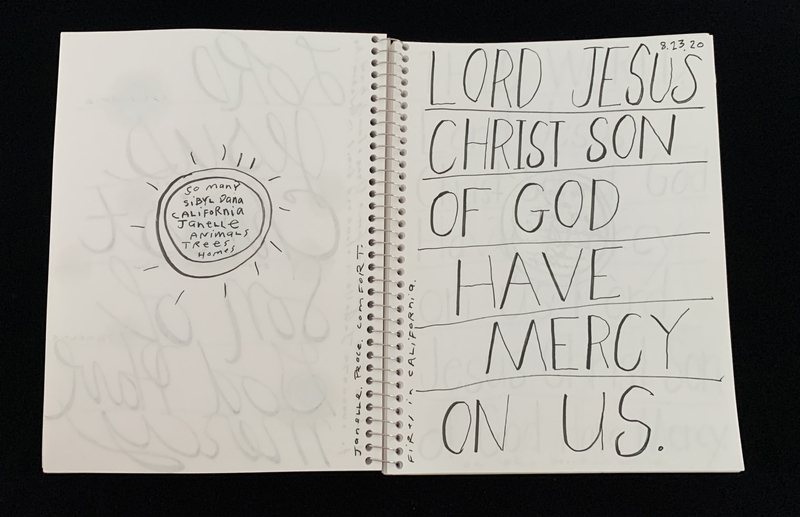 SO MANY
SIBYL DANA
CALIFORNIA
JANELLE
ANIMALS
TREES
HOMES
JANELLE. PEACE. COMFORT.
8.23.20
LORD JESUS
CHRIST SON
OF GOD
HAVE
MERCY
ON US.
FIRES IN CALIFORNIA.